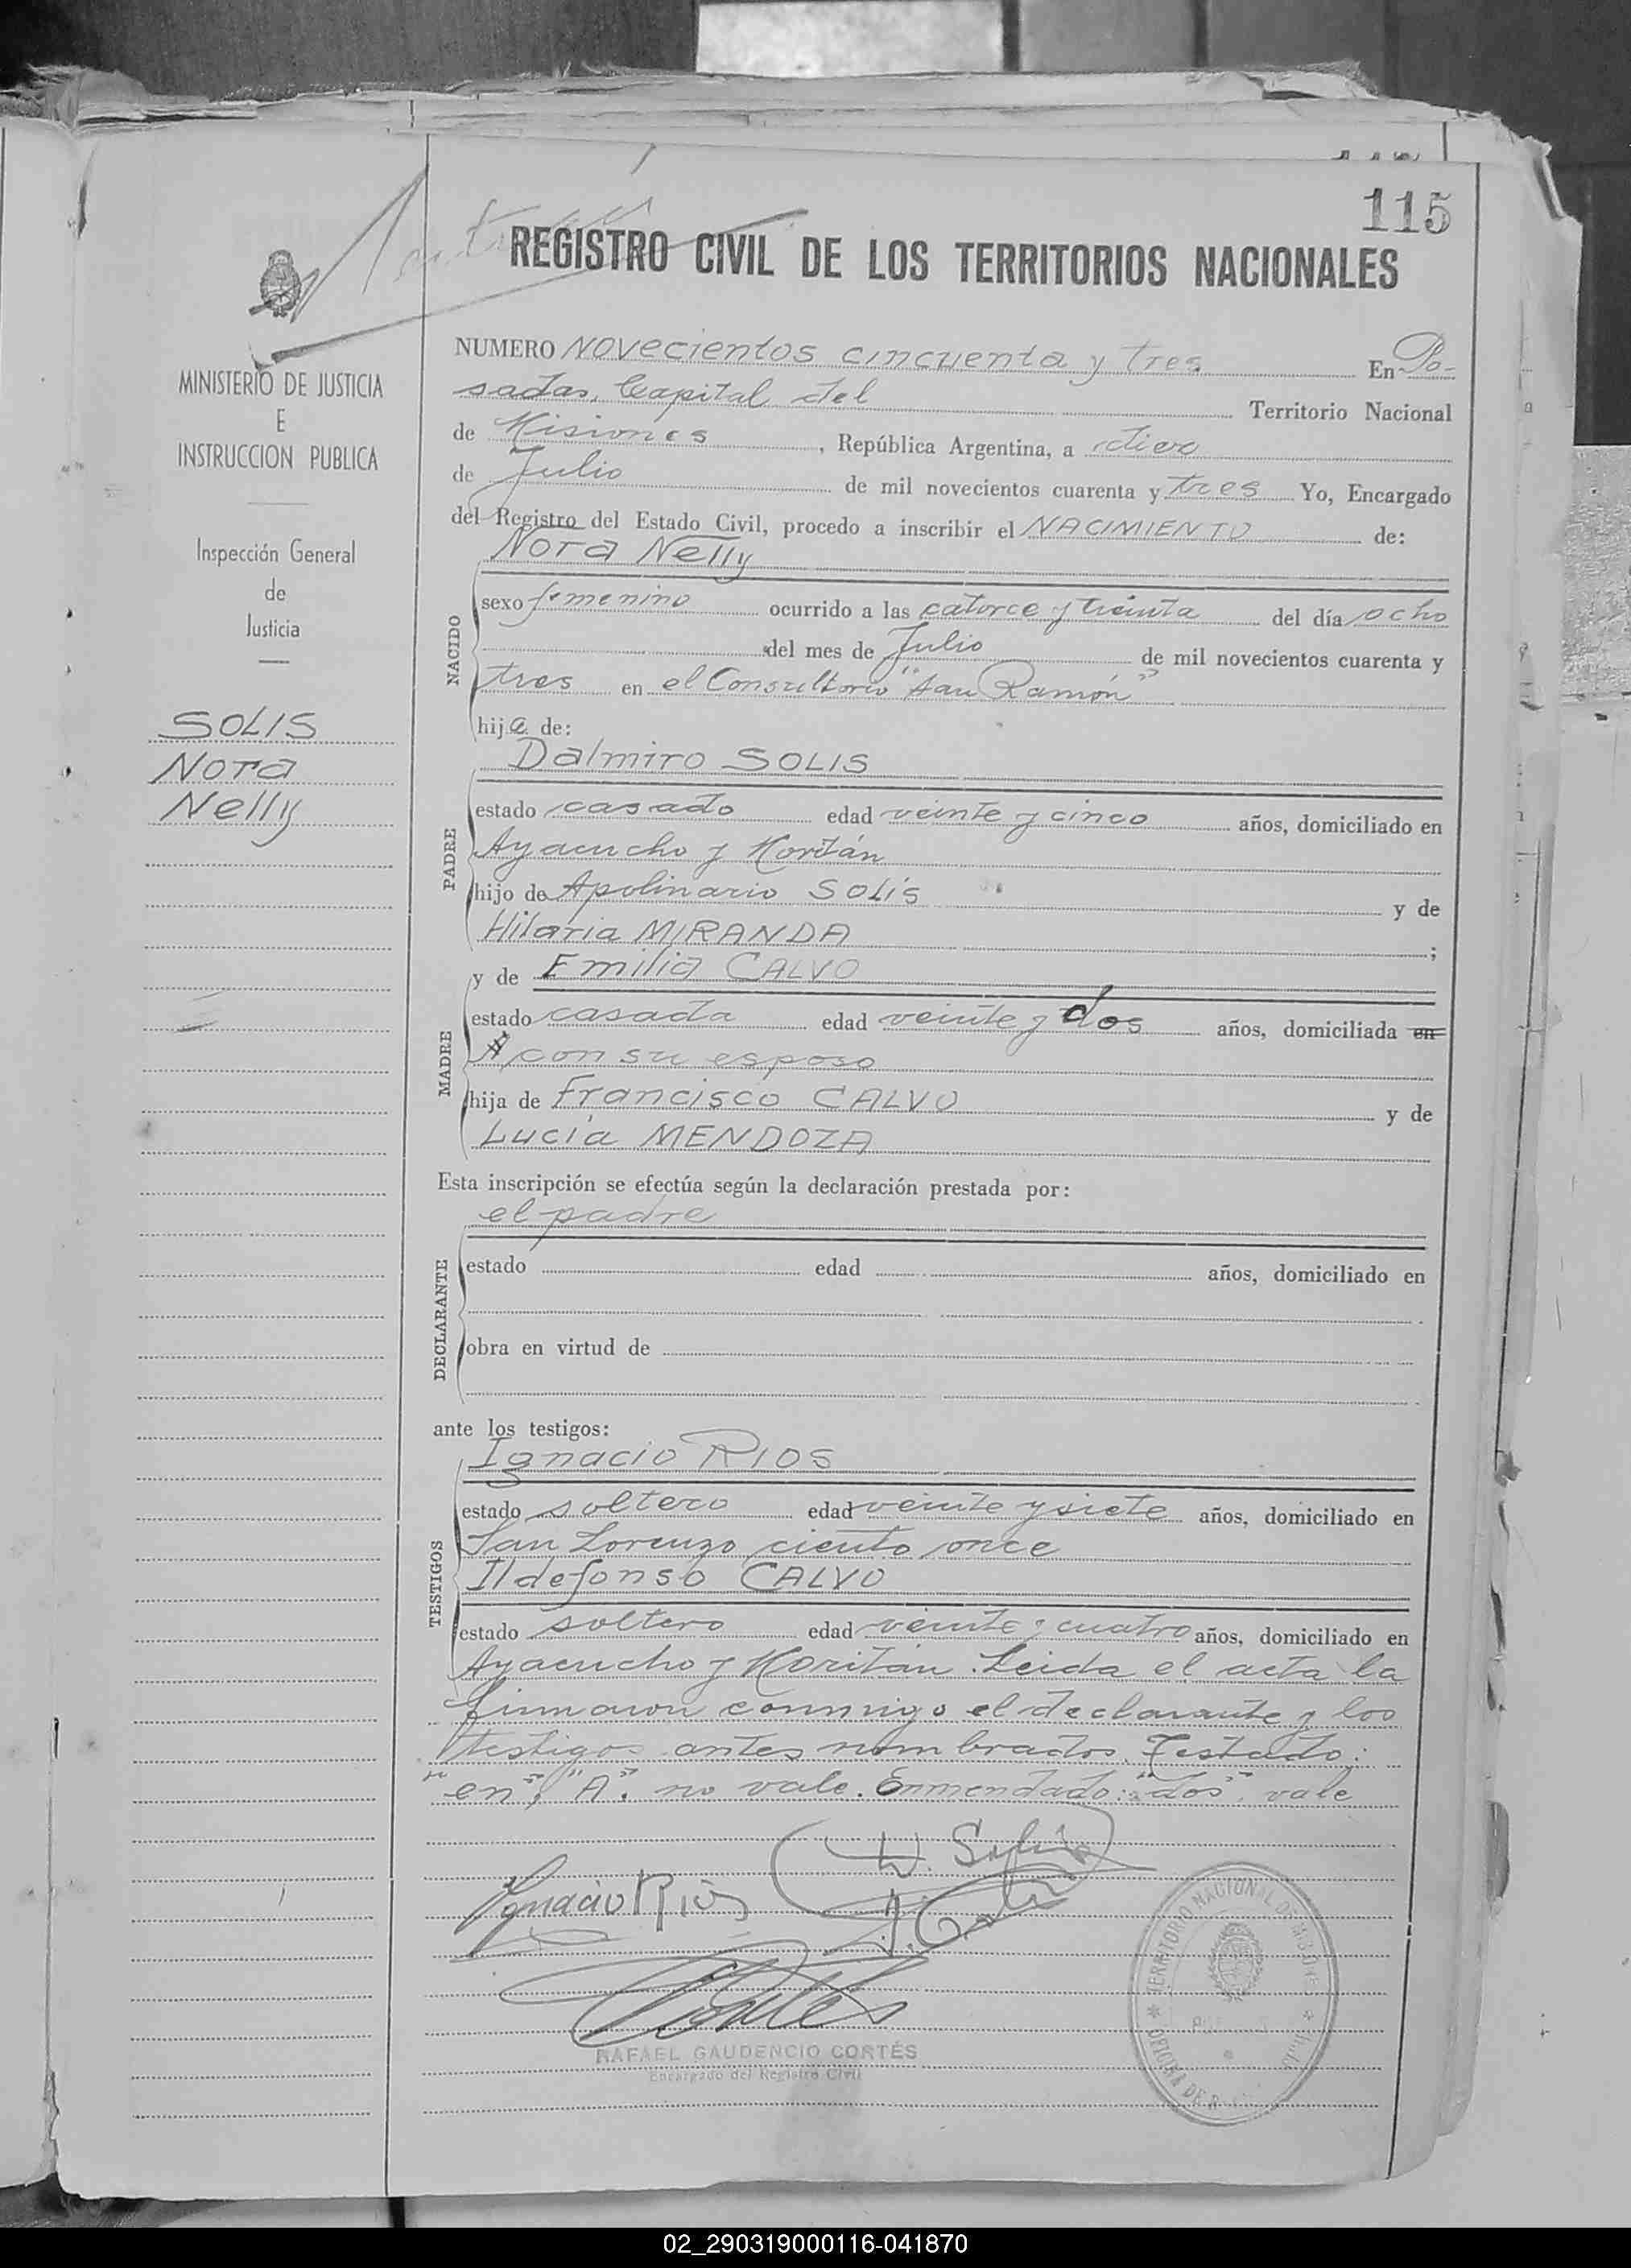 115
REGISTRO CIVIL DE LOS TERRITORIOS NACIONALES
MINISTERIO DE JUSTICIA
E
INSTRUCCION PUBLICA
Inspección General
de
Justicia
SOLIS
Nora
Nelly
NUMERO Novecientos cincuenta y tres En Po-
sadas, Capital del Territorio Nacional
de Misiones, República Argentina, a diez
de Julio de mil novecientos cuarenta y tres Yo, Encargado
del Registro del Estado Civil, procedo a inscribir el NACIMIENTO de:
Nora Nelly
NACIDO
sexo femenino ocurrido a las catorce y treinta del día ocho
del mes de Julio de mil novecientos cuarenta y
tres en el Consultorio "San Ramón"
hija de:
Dalmiro SOLIS
PADRE
estado casado edad veinte y cinco años, domiciliado en
Ayacucho y Moritán
hijo de Apolinario SOLIS y de
Hilaria MIRANDA ;
y de Emilia CALVO
MADRE
estado casada edad veinte y dos años, domiciliada en
A con su esposo
hija de Francisco CALVO y de
Lucía MENDOZA
Esta inscripción se efectúa según la declaración prestada por:
el padre
DECLARANTE
estado edad años, domiciliado en
obra en virtud de
ante los testigos:
Ignacio RIOS
TESTIGOS
estado soltero edad veinte y siete años, domiciliado en
San Lorenzo ciento once
Ildefonso CALVO
estado soltero edad veinte y cuatro años, domiciliado en
Ayacucho y Moritán. Leida el acta la
firmaron conmigo el declarante y los
testigos antes nombrados. Testado:
"en", "A". no vale. Enmendado: "dos". vale
D. Solis
Ignacio Rios
I. Calvo
Cortés
RAFAEL GAUDENCIO CORTÉS
Encargado del Registro Civil
TERRITORIO NACIONAL DE MISIONES
OFICINA DE
02_290319000116-041870